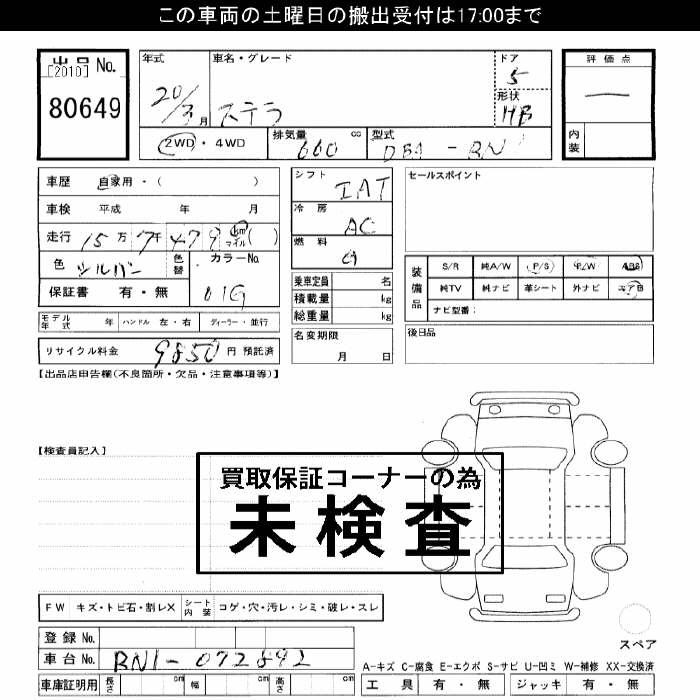 この車両の土曜日の搬出受付は17:00まで
出品 No.
[2010]
80649
年式
20/3月
車名・グレード
ステラ
ドア
5
形状
HB
2WD・4WD
排気量
660 cc
型式
DBA - RN1
評価点
内装
車歴 自家用・( )
車検 平成 年 月
走行 15万7千479 km マイル ( )
色 シルバー
色替
カラーNo.
01G
保証書 有・無
モデル年式 年 ハンドル 左・右 ディーラー・並行
リサイクル料金 9850 円 預託済
シフト
IAT
冷房
AC
燃料
G
乗車定員 名
積載量 kg
総重量 kg
名変期限
月 日
セールスポイント
装備品
S/R 純A/W P/S P/W ABS
純TV 純ナビ 革シート 外ナビ エアB
ナビ型番:
後日品
【出品店申告欄(不良箇所・欠品・注意事項等)】
【検査員記入】
買取保証コーナーの為
未検査
FW キズ・トビ石・割レX シート内装 コゲ・穴・汚レ・シミ・破レ・スレ
登録 No.
車台 No. RN1-072892
車庫証明用 長さ cm 幅 cm 高さ cm
スペア
A-キズ C-腐食 E-エクボ S-サビ U-凹ミ W-補修 XX-交換済
工具 有・無 ジャッキ 有・無